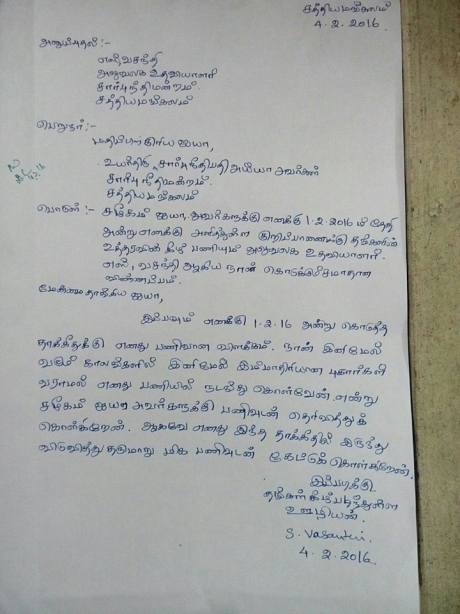 சத்தியமங்கலம்
4.2.2016
அனுப்புதல் :-
எஸ்.வசந்தி
அலுவலக உதவியாளர்
சார்பு நீதிமன்றம்.
சத்தியமங்கலம்
பெறுநர் :-
மதிப்பிற்குரிய ஐயா,
உயர்திரு சார்பு நீதிபதி அய்யா அவர்கள்
சார்பு நீதிமன்றம்.
சத்தியமங்கலம்
பொருள் :- சமூகம் ஐயா அவர்களுக்கு எனக்கு 1-2-2016 ம் தேதி
அன்று எனக்கு அளித்துள்ள குறிப்பாணைக்கு தங்களின்
உத்தரவின் கீழ் பணியும் அலுவலக உதவியாளர்.
எஸ், வசந்தி ஆகிய நான் கொடுக்கும்
விண்ணப்பம்.
மேன்மை தாங்கிய ஐயா,
இப்பவும் எனக்கு 1-2-16 அன்று கொடுத்த
தாக்கீதுக்கு எனது பணிவான விளக்கம். நான் இனிமேல்
வரும் காலங்களில் இனிமேல் இம்மாதிரியான புகார்கள்
வராமல் எனது பணியில் நடந்து கொள்வேன் என்று
சமூகம் ஐயா அவர்களுக்கு பணிவுடன் தெரிவித்துக்
கொள்கிறேன். ஆகவே எனது இந்த தாக்கீதில் இருந்து
விடுவித்து தருமாறு மிக பணிவுடன் கேட்டுக் கொள்கிறேன்.
இப்படிக்கு
தங்கள் கீழ்படிந்துள்ள
ஊழியன்.
S. Vasanthi
4.2.2016.